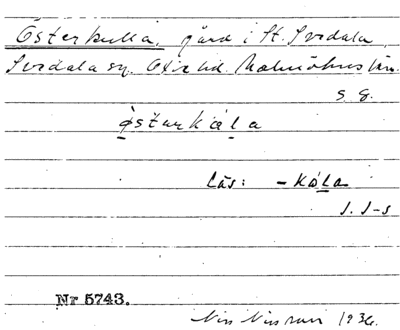 Österkulla, gård i St. Svedala
Svedala sn. Oxie hd. Malmöhus län.
s. g.
östurkåla
Läs: -kåla
J. J-s
Nr 5743.
Nils Nilsson 1936.